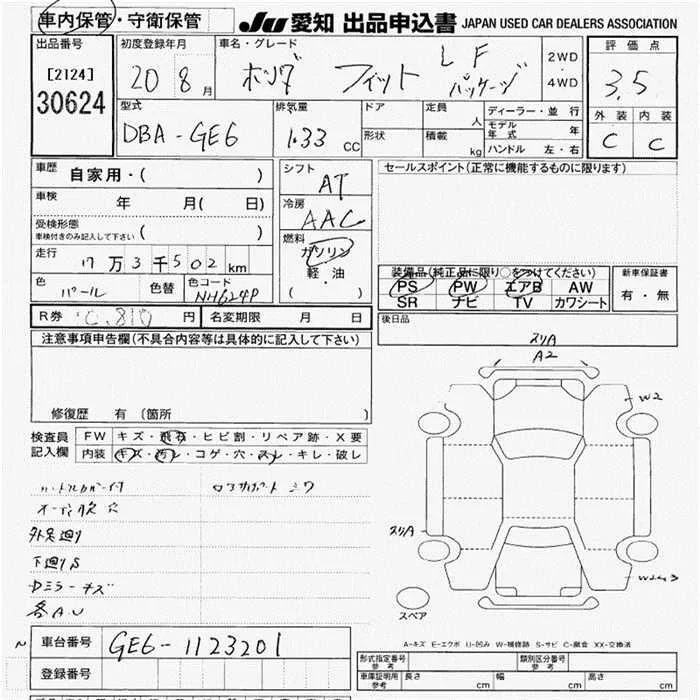 車内保管・守衛保管
JU 愛知 出品申込書 JAPAN USED CAR DEALERS ASSOCIATION
出品番号
[2124]
30624
初度登録年月
20 8 月
車名・グレード
ホンダ フィット LF パッケージ
2WD
・
4WD
評価点
3.5
外装 内装
C C
型式
DBA-GE6
排気量
1.33 CC
ドア
形状
定員 人
積載 kg
ディーラー・並行
モデル年式 年
ハンドル 左・右
車歴
自家用・( )
車検
年 月( 日)
受検形態
車検付きのみ記入して下さい ( )
走行
17万3千502km
色
パール
色替
色コード
NH624P
シフト
AT
冷房
AAC
燃料
ガソリン
軽・油
( )
セールスポイント(正常に機能するものに限ります)
装備品(純正品に限り○をつけてください)
PS PW エアB AW
SR ナビ TV カワシート
新車保証書
有・無
R券 円
名変期限 月 日
後日品
注意事項申告欄(不具合内容等は具体的に記入して下さい)
修復歴 有(箇所 )
検査員
記入欄
FW キズ・飛石・ヒビ割・リペア跡・X要
内装 キズ・汚レ・コゲ・穴・スレ・キレ・破レ
スリA
A2
W2
スリA
W2
スペア
オーディオ 穴
外足廻り
下廻りS
Dミラーキズ
各A.U
A-キズ E-エクボ U-凹み W-補修跡 S-サビ C-腐食 XX-交換済
車台番号
GE6-1123201
登録番号
形式指定番号
参考
類別区分番号
参考
車庫証明用
参考
長さ cm
幅 cm
高さ cm